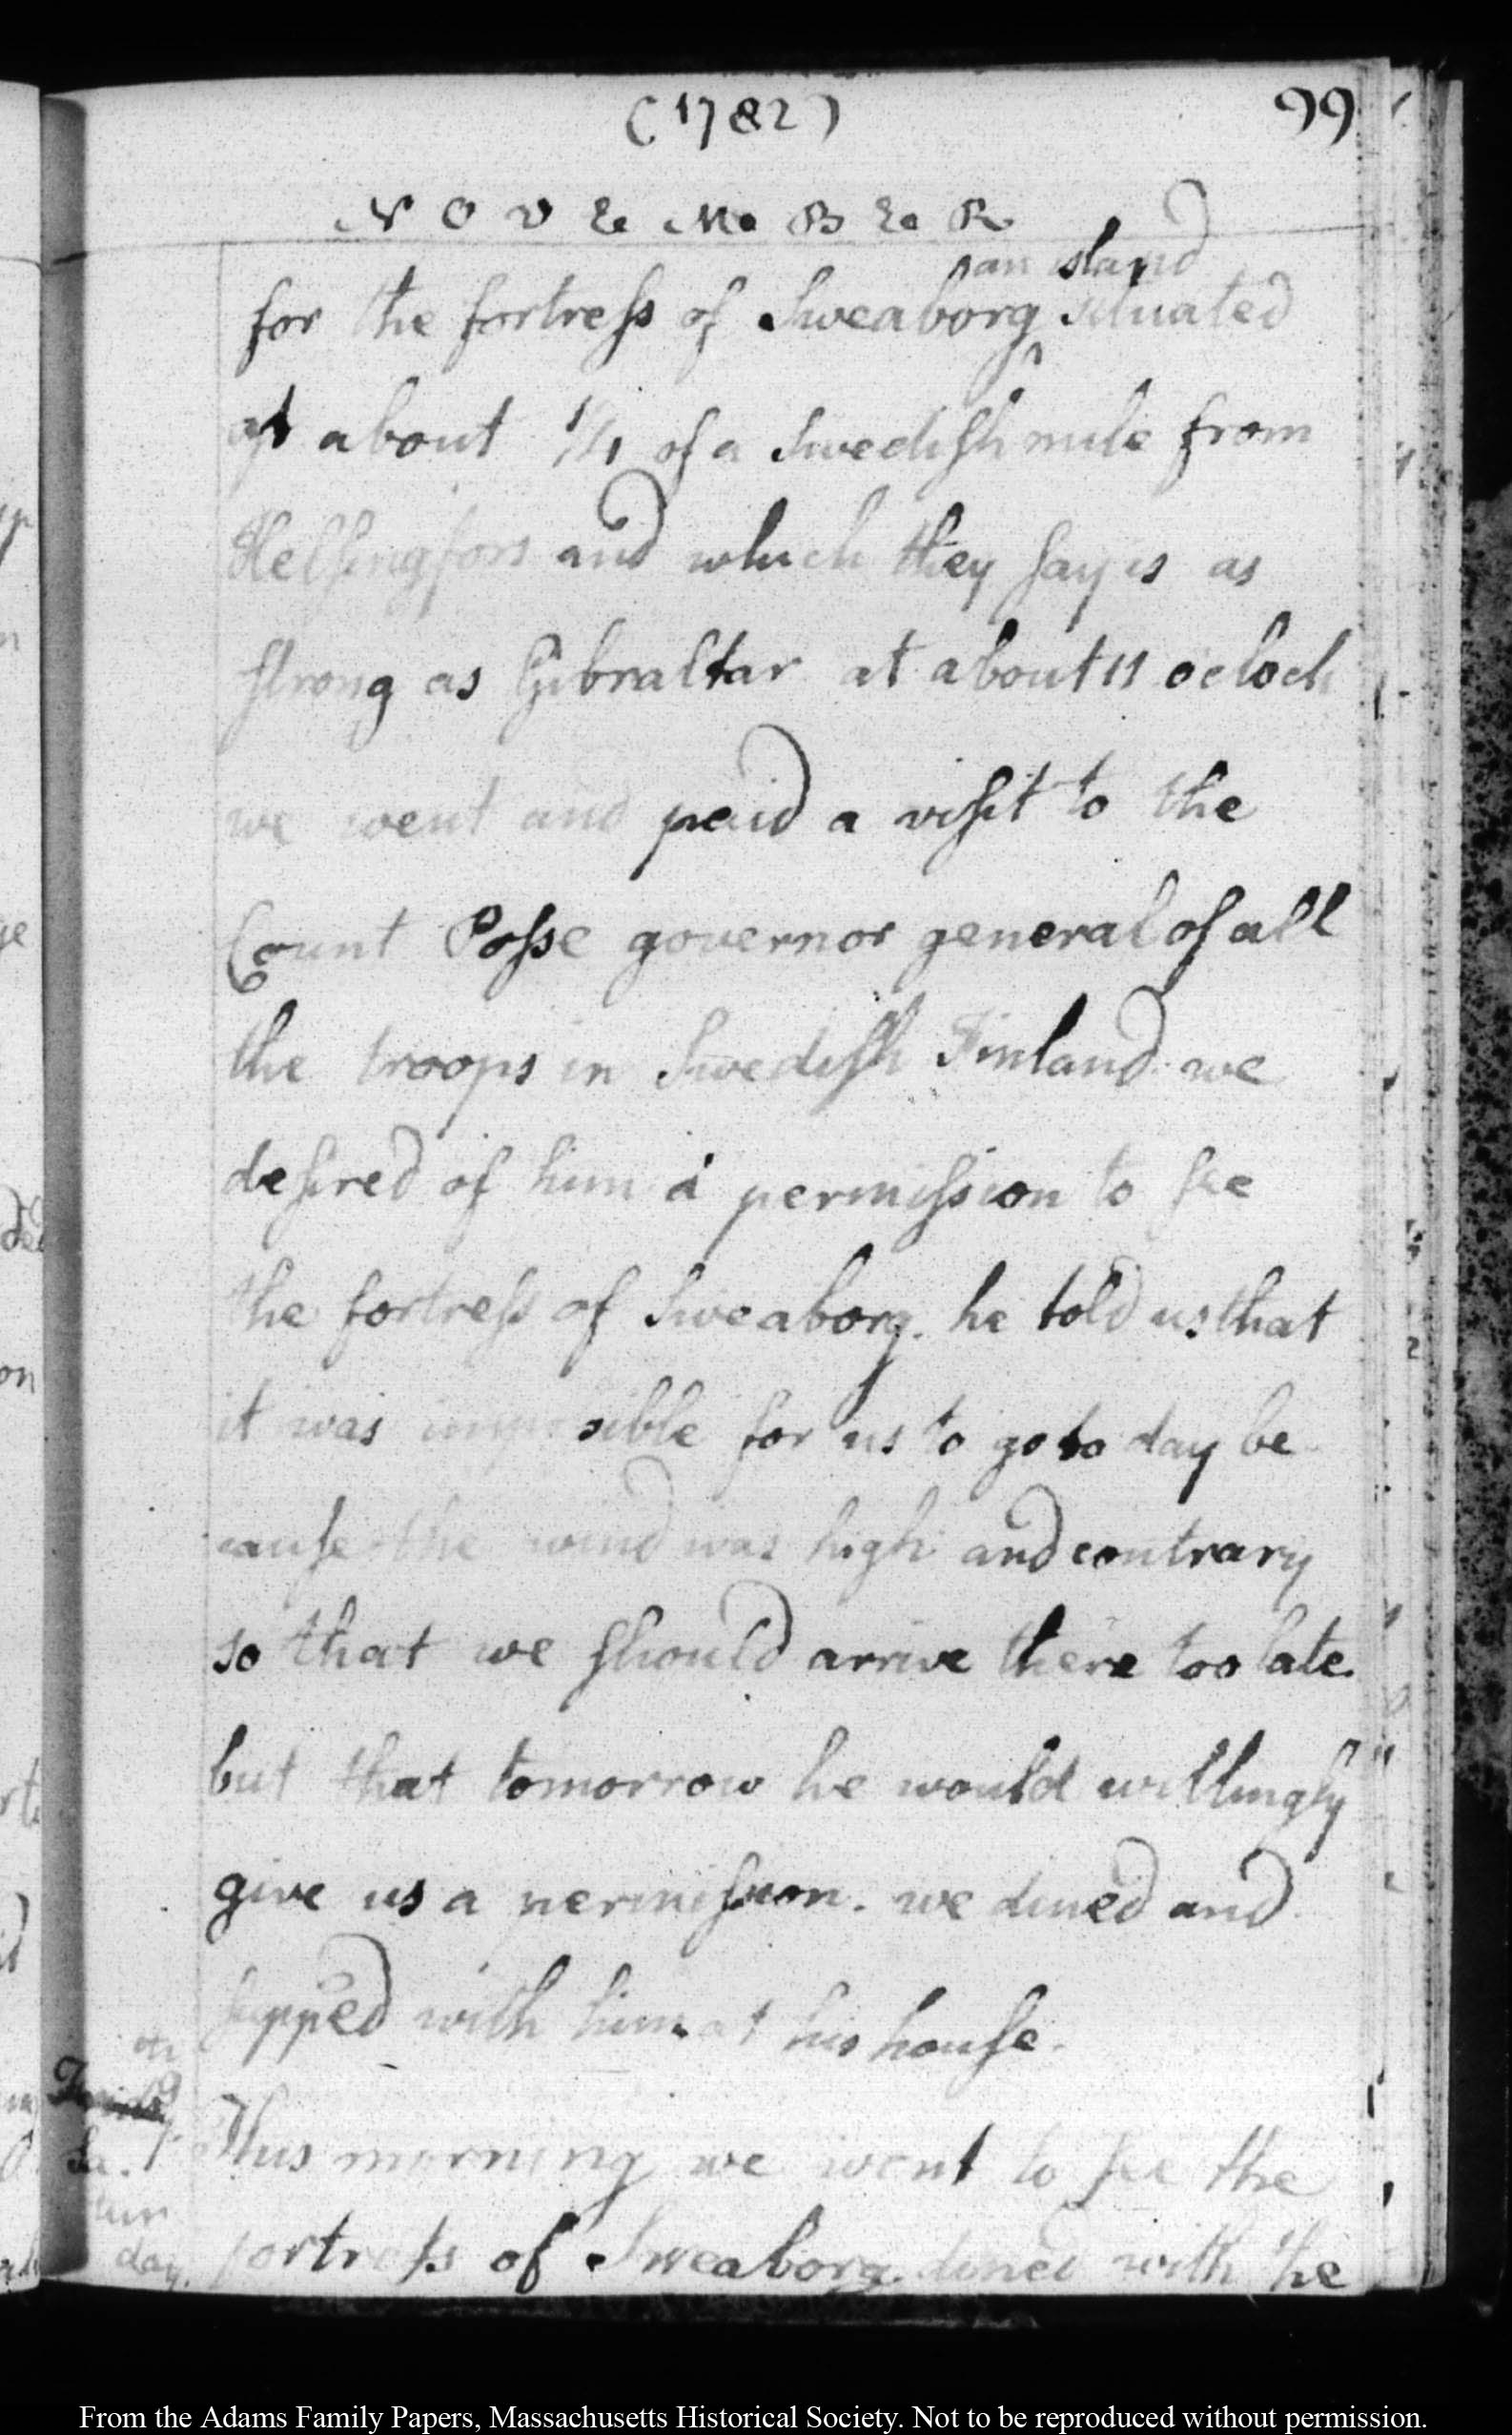 (1782)
99
NOVEMBER
an island
for the fortress of Sweaborg ^ situated
at about 1/4 of a Swedish mile from
Helsingfors and which they say is as
strong as Gibraltar at about 11 o'clock
we went and paid a visit to the
Count Posse governor general of all
the troops in Swedish Finland we
desired of him a permission to see
the fortress of Sweaborg. he told us that
it was impossible for us to go to day be
cause the wind was high and contrary
so that we should arrive there too late
but that tomorrow he would willingly
give us a permission. we dined and
supped with him at his house.
This morning we went to see the
Sa.
tur
day.
fortress of Sweaborg. dined with the
From the Adams Family Papers, Massachusetts Historical Society. Not to be reproduced without permission.